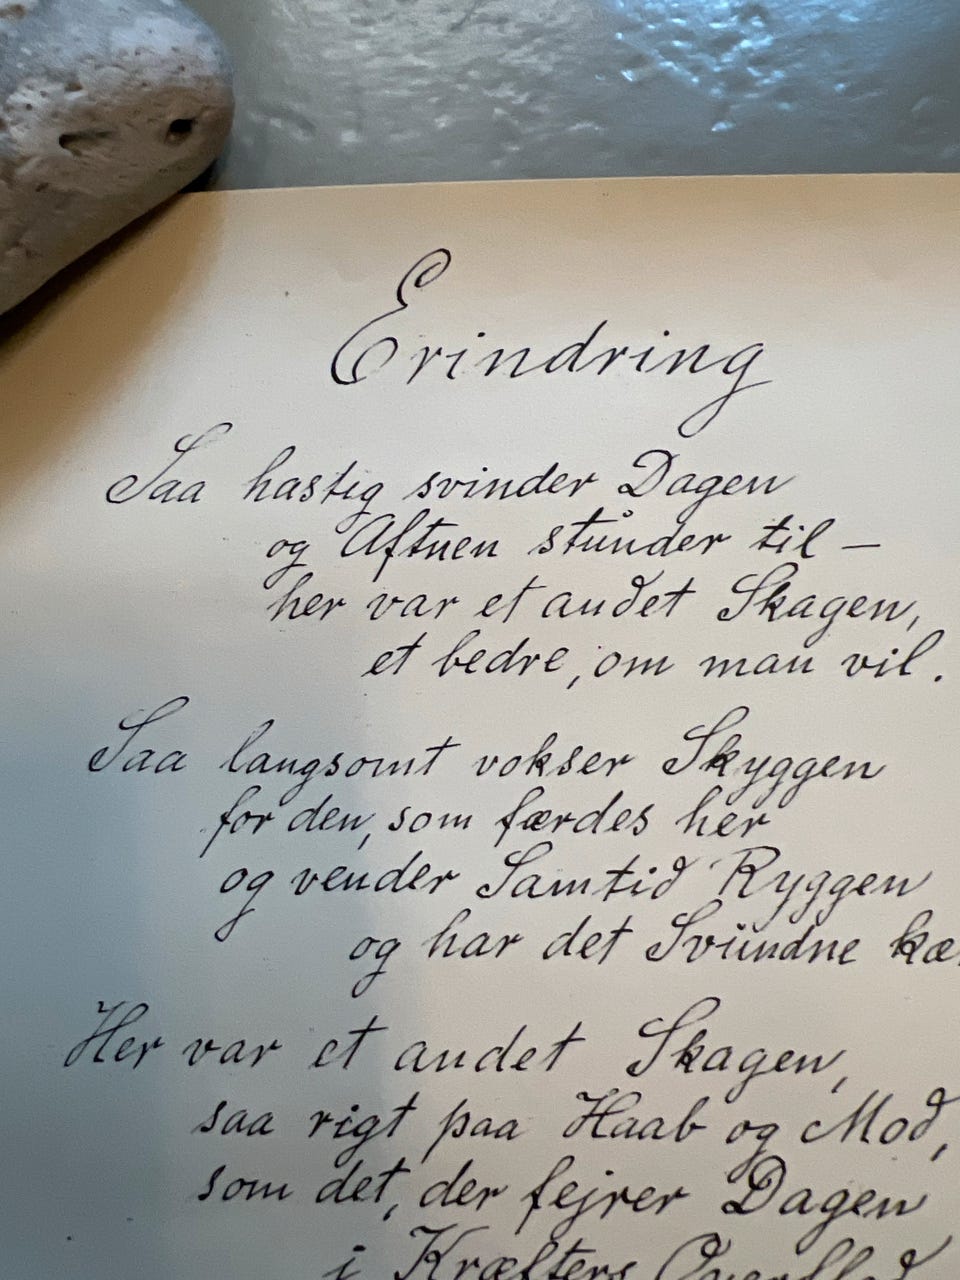 Erindring
Saa hastig svinder Dagen
og Aftnen stunder til —
her var et andet Skagen,
et bedre, om man vil.
Saa langsomt vokser Skyggen
for den, som færdes her
og vender Samtid Ryggen
og har det Svundne kæ
Her var et andet Skagen,
saa rigt paa Haab og Mod,
som det, der fejrer Dagen
i Kræfters Overflod